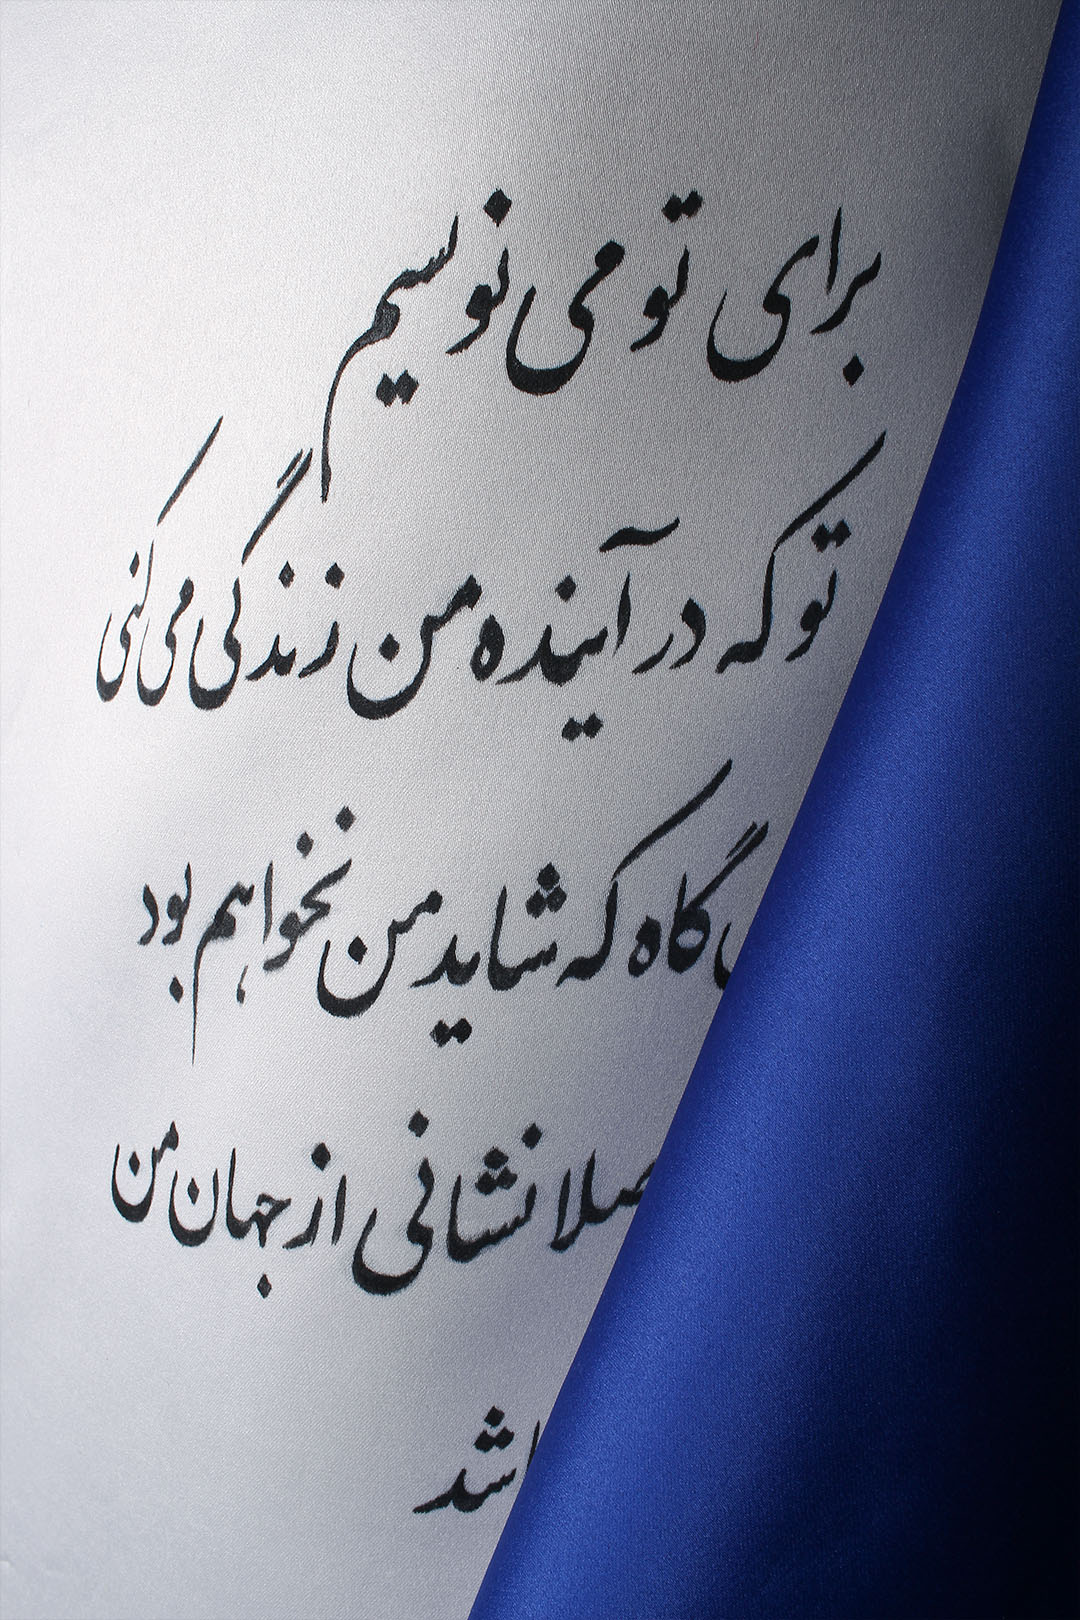 برای تو می نویسم
تو که در آینده من زندگی می کنی
گاه که شاید من نخواهم بود
نشانی از جهان من